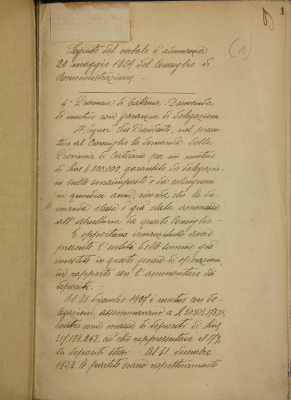 1
(1)
Seguito del verbale d'adunanza
20 maggio 1929 del Consiglio di
Amministrazione. -
4° Provincia di Catania. Domanda
di mutuo con garanzia di delegazioni
Il Signor Presidente, nel presen
tare al Consiglio la domanda della
Provincia di Catania per un mutuo
di Lire 4.000.000, garantito da delegazio
ni sulla sovraimposta e da estinguersi
in quindici anni, ricorda che la do
manda stessa è già stata rimessa
all'istruttoria da questo Consiglio. -
È opportuno innanzitutto avere
presente l'entità delle somme già
investite in questo genere di operazioni
in rapporto con l'ammontare dei
depositi. -
Al 31 dicembre 1927 i mutui con de-
legazioni, assommavano a
contro una massa di depositi di Lire
ciò che rappresentava il
dei depositi stessi. Al 31 dicembre
1928 le partite erano rispettivamente